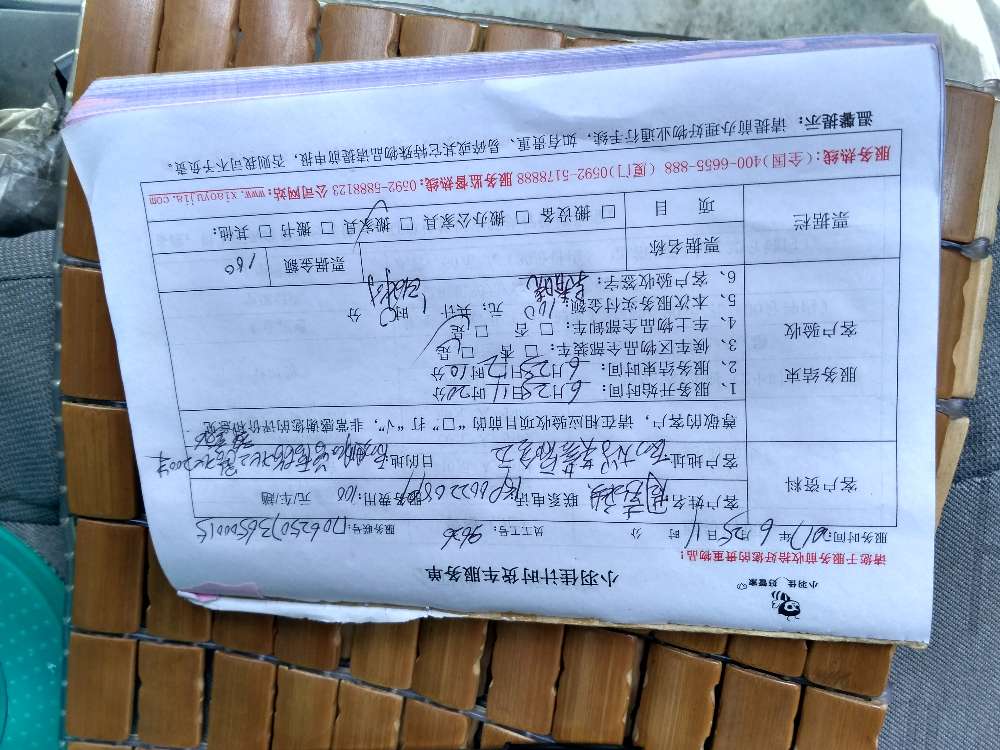 小羽佳 好管家
小羽佳计时货车服务单
请您于服务前收拾好您的贵重物品:
服务时间: 2017年6月28日11时 分 员工工号: 9626 服务账号:
客户资料 客户姓名: 联系电话: 服务费用: 100 元/车/趟
客户地址: 目的地:
尊敬的客户, 请在相应验收项目前的 “□” 打 “√”, 非常感谢您的评价和意见
服务结束 客户验收
1、服务开始时间: 6月28日11时20分
2、服务结束时间: 6月28日12时10分
3、候车区物品全部装车: □ 否 □ 是
4、车上物品全部卸车: □ 否 □ 是
5、本次服务实付金额: 160 元; 共计 1 时 0 分
6、客户验收签字:
票据栏 票据名称 票据金额 160
项 目 □ 搬设备 □ 搬办公家具 □ 搬家具 □ 搬书 □ 其他:
服务热线: (全国)400-6655-888 (厦门)0592-5178888 服务监督热线: 0592-5888123 公司网站: www.xiaoyujia.com
温馨提示: 请提前办理好物业通行手续, 如有贵重、易碎或其它特殊物品请提前申报, 否则我司不予负责。